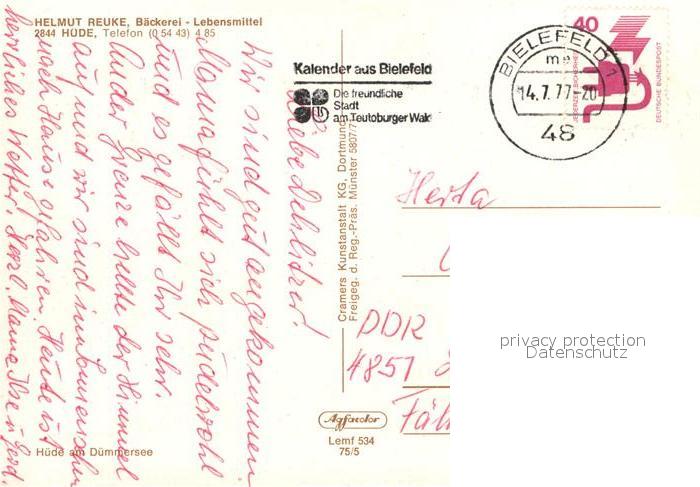 HELMUT REUKE, Bäckerei - Lebensmittel
2844 HÜDE, Telefon (0 54 43) 4 85
Liebe Dehlitzer!
Wir sind gut angekommen.
Mama fühlt sich pudelwohl
und es gefällt Ihr sehr.
An der Grenze hellte der Himmel
auf und wir sind im
nach Hause gefahren. Heute ist
herrliches Wetter. Herzl. Mama Ilse u. Gerd.
Hüde am Dümmersee
Kalender aus Bielefeld
Die freundliche
Stadt
am Teutoburger Wald
BIELEFELD 1
me
14.7.77-20
48
40
JEDERZEIT SICHERHEIT
DEUTSCHE BUNDESPOST
Cramers Kunstanstalt KG, Dortmund
Freigeg. d. Reg.-Präs. Münster 5807/7
Herta
DDR
4851
privacy protection
Datenschutz
Agfacolor
Lemf 534
75/5